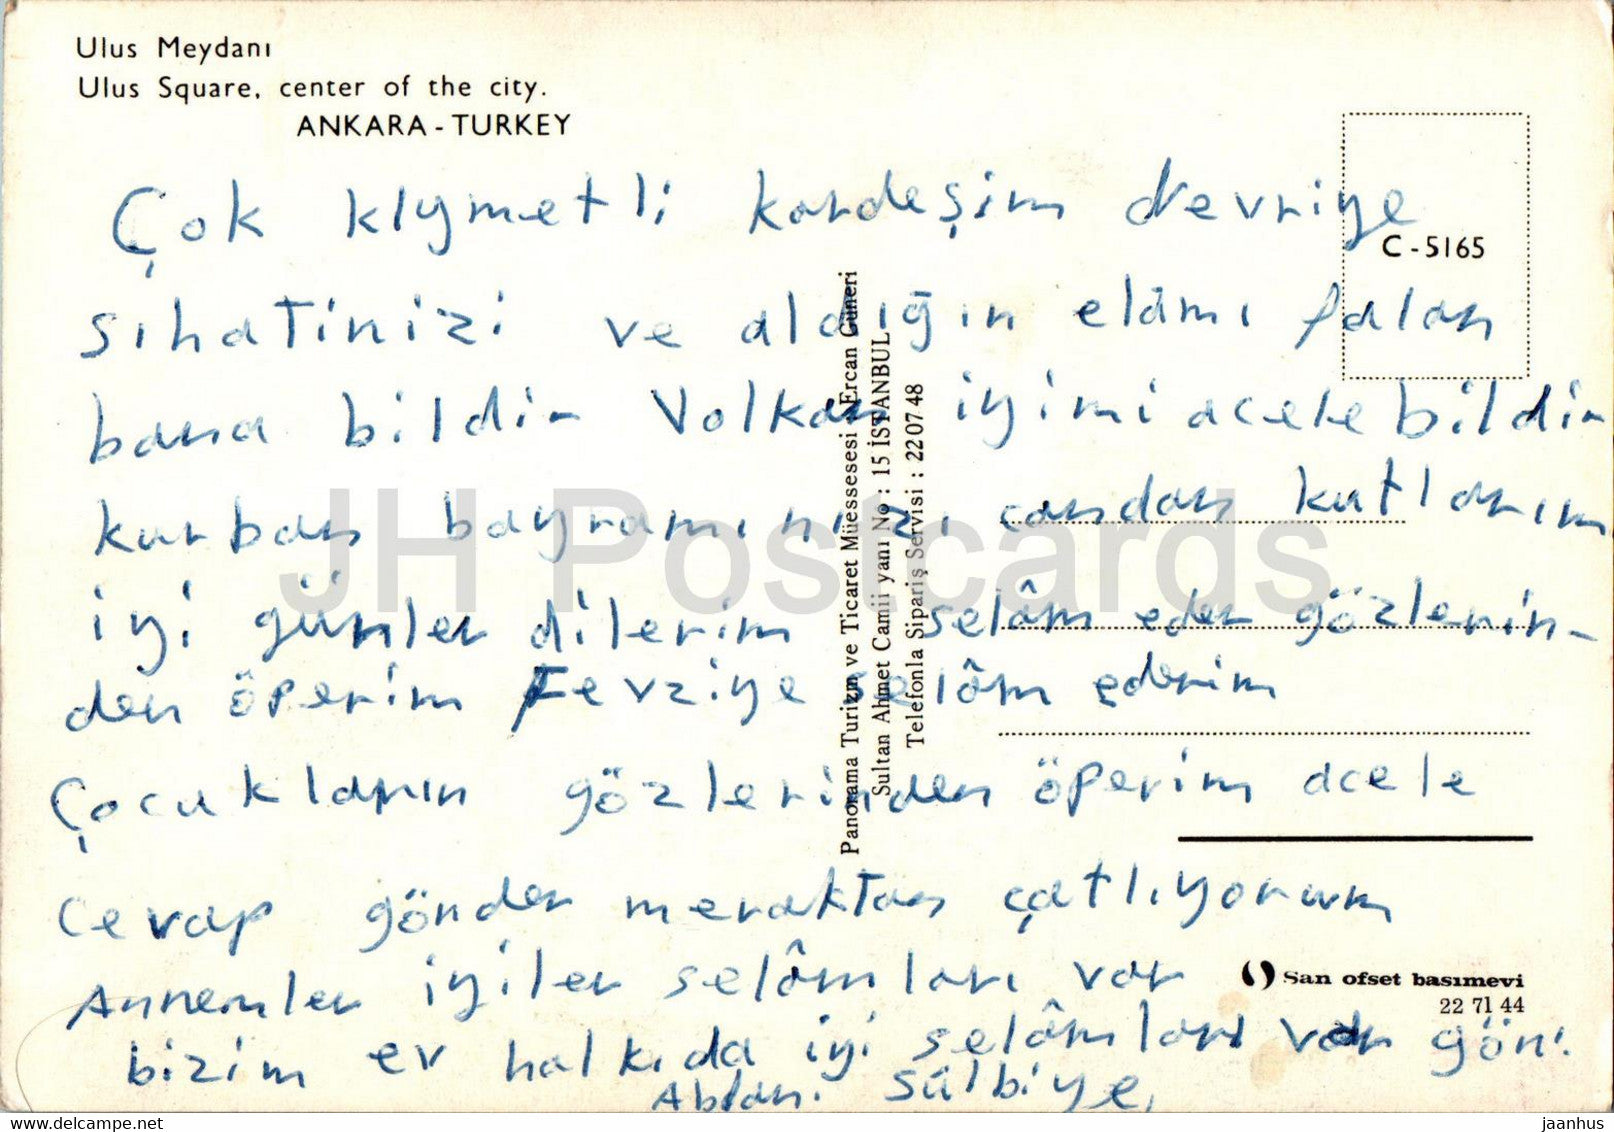 Ulus Meydanı
Ulus Square, center of the city.
ANKARA - TURKEY
C - 5165
Çok kıymetli kardeşim Nevriye
sıhatinizi ve aldığın elâmı falan
bana bildir Volkan iyimi acele bildir
kurban bayramınızı candan kutlarım
iyi günler dilerim selâm eder gözlerin-
den öperim Fevziye selâm ederim
Çocukların gözlerinden öperim acele
Cevap gönder meraktan çatlıyorum
Annemler iyiler selâmları var
bizim ev halkıda iyi selâmları var gön.
Ablan. Sülbiye,
Panorama Turizm ve Ticaret Müessesesi Ercan Güneri
Sultan Ahmet Camii yanı No : 15 İSTANBUL
Telefonla Sipariş Servisi : 22 07 48
San ofset basımevi
22 71 44
JH Postcards
www.delcampe.net
jaanhus